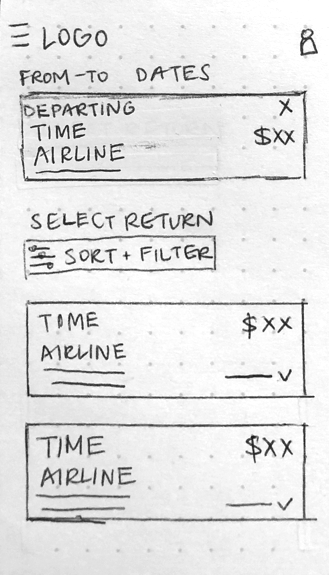 LOGO
FROM-TO DATES
DEPARTING X
TIME $XX
AIRLINE
SELECT RETURN
SORT + FILTER
TIME $XX
AIRLINE
TIME $XX
AIRLINE